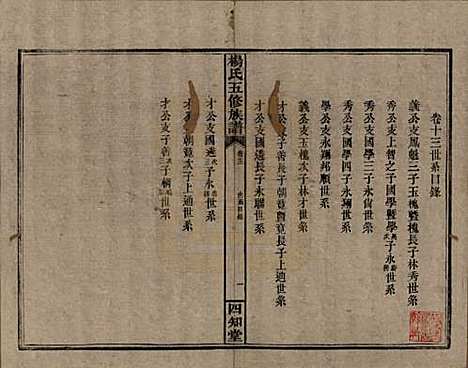 卷十三世系目錄
義公支鳳魁三子玉槐暨槐長子林秀世系
秀公支上智之子國學暨學子永世系
秀公支國學三子永貴世系
秀公支國學四子永翔世系
學公支永翔邦順世系
義公支玉槐次子林才世系
才公支國遠長子永聯世系
才公支子善長子朝暨寬長子上適世系
楊氏五修族譜
卷十三
世系目錄
一
四知堂
才公支國遠次三子永世系
才朝寬次子上通世系
才公支子善次三子朝世系